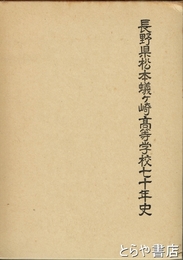 長野県松本蟻ヶ崎高等学校七十年史
とらや書店